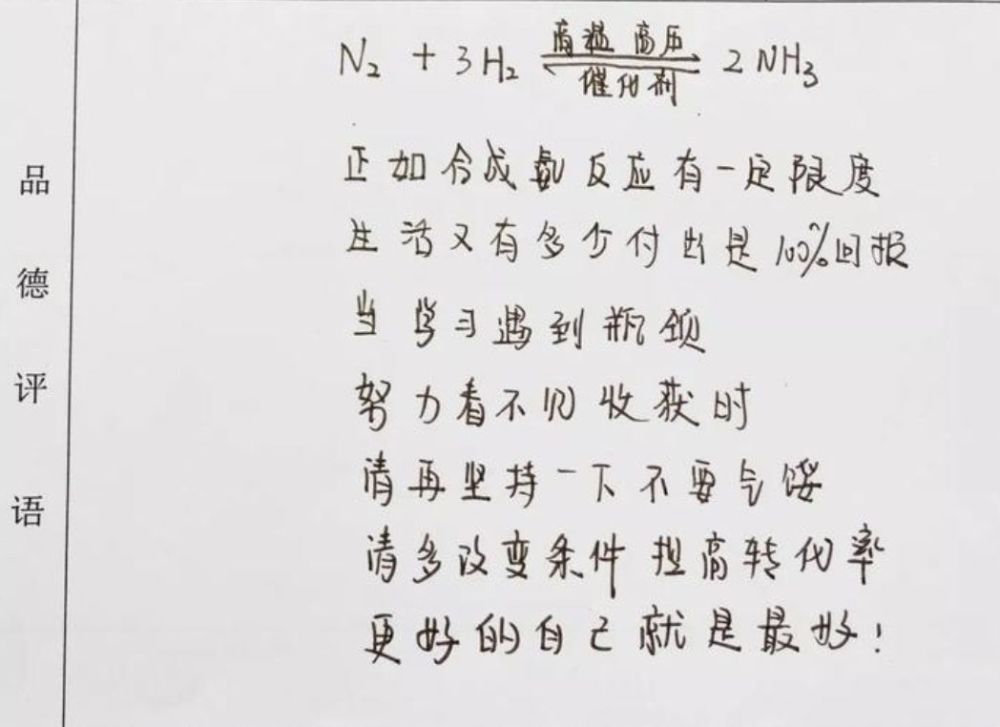 品德评语
N₂ + 3H₂ ⇌ 2NH₃
高温 高压
催化剂
正如合成氨反应有一定限度
生活又有多少付出是100%回报
当学习遇到瓶颈
努力看不见收获时
请再坚持一下不要气馁
请多改变条件提高转化率
更好的自己就是最好!